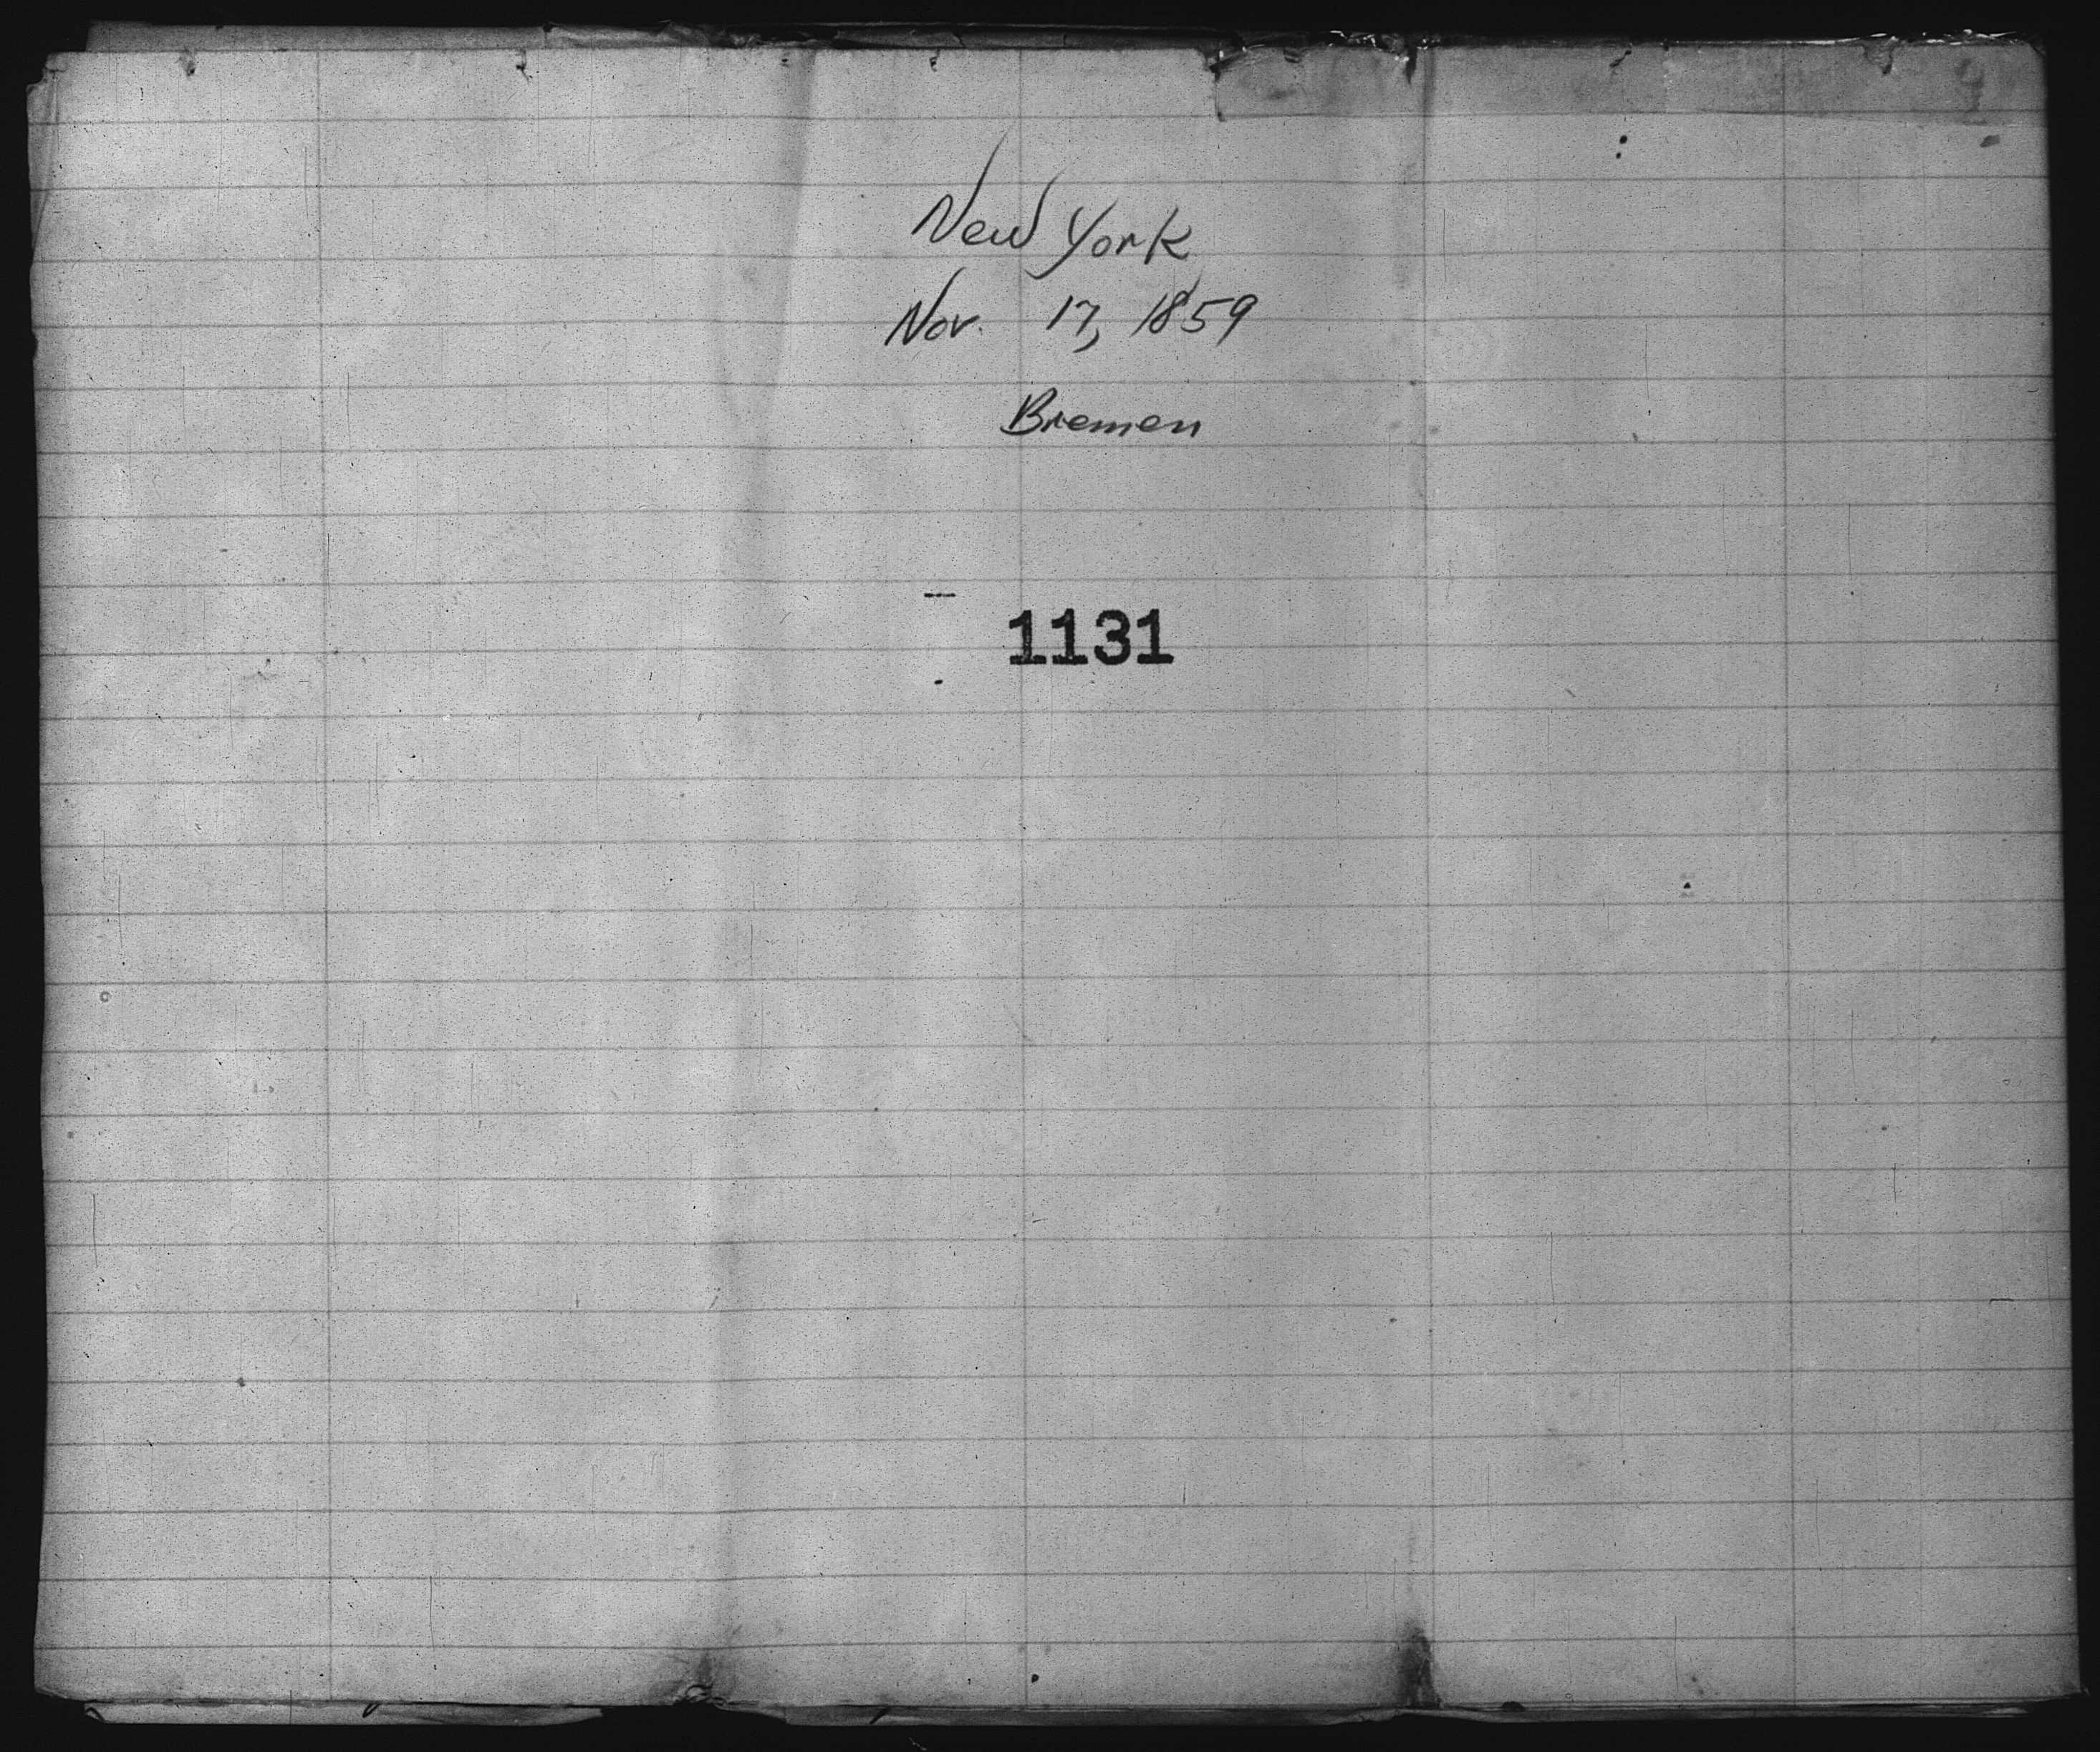 New York
Nov. 17, 1859
Bremen
1131